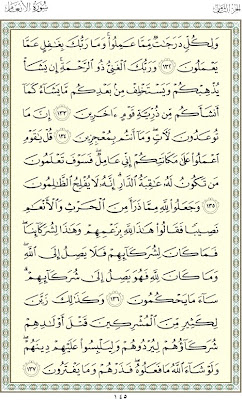 الجزء الثامن سورة الأنعام
وَلِكُلٍّ دَرَجَٰتٌ مِّمَّا عَمِلُوا۟ وَمَا رَبُّكَ بِغَٰفِلٍ عَمَّا
يَعْمَلُونَ ١٣٢ وَرَبُّكَ الْغَنِيُّ ذُو الرَّحْمَةِ إِن يَشَأْ
يُذْهِبْكُمْ وَيَسْتَخْلِفْ مِنۢ بَعْدِكُم مَّا يَشَآءُ كَمَآ
أَنشَأَكُم مِّن ذُرِّيَّةِ قَوْمٍ ءَاخَرِينَ ١٣٣ إِنَّ مَا
تُوعَدُونَ لَءَاتٍ وَمَآ أَنتُم بِمُعْجِزِينَ ١٣٤ قُلْ يَٰقَوْمِ
اعْمَلُوا۟ عَلَىٰ مَكَانَتِكُمْ إِنِّي عَامِلٌ فَسَوْفَ تَعْلَمُونَ
مَن تَكُونُ لَهُۥ عَٰقِبَةُ الدَّارِ إِنَّهُۥ لَا يُفْلِحُ الظَّٰلِمُونَ
١٣٥ وَجَعَلُوا۟ لِلَّهِ مِمَّا ذَرَأَ مِنَ الْحَرْثِ وَالْأَنْعَٰمِ
نَصِيبًا فَقَالُوا۟ هَٰذَا لِلَّهِ بِزَعْمِهِمْ وَهَٰذَا لِشُرَكَآئِنَا
فَمَا كَانَ لِشُرَكَآئِهِمْ فَلَا يَصِلُ إِلَى اللَّهِ
وَمَا كَانَ لِلَّهِ فَهُوَ يَصِلُ إِلَىٰ شُرَكَآئِهِمْ
سَآءَ مَا يَحْكُمُونَ ١٣٦ وَكَذَٰلِكَ زَيَّنَ
لِكَثِيرٍ مِّنَ الْمُشْرِكِينَ قَتْلَ أَوْلَٰدِهِمْ
شُرَكَآؤُهُمْ لِيُرْدُوهُمْ وَلِيَلْبِسُوا۟ عَلَيْهِمْ دِينَهُمْ
وَلَوْ شَآءَ اللَّهُ مَا فَعَلُوهُ فَذَرْهُمْ وَمَا يَفْتَرُونَ ١٣٧
١٤٥